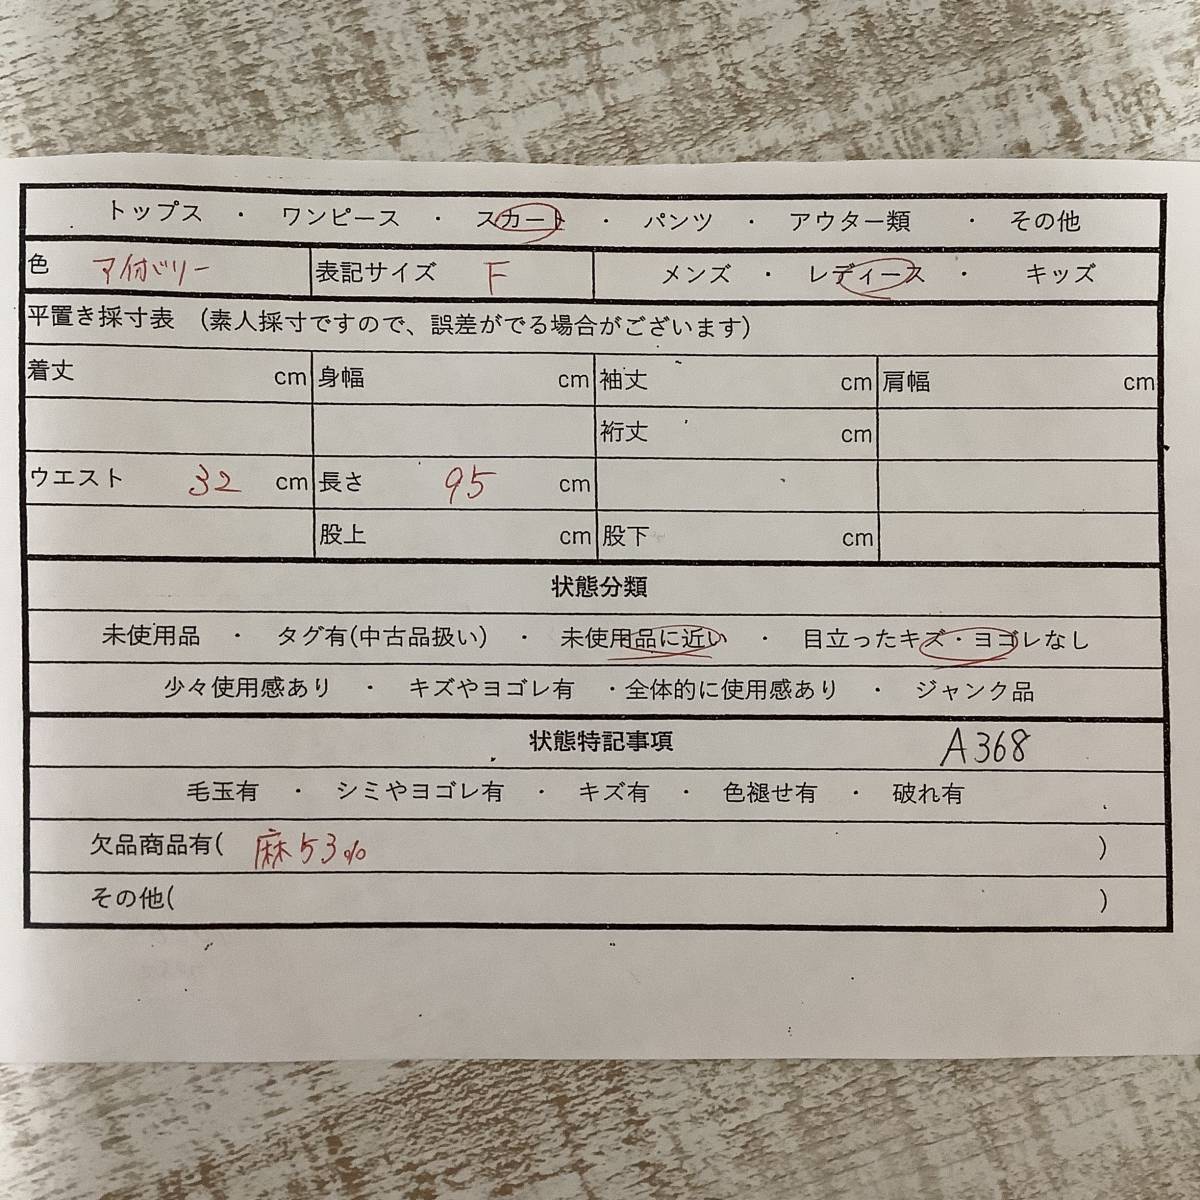 トップス ・ ワンピース ・ スカート ・ パンツ ・ アウター類 ・ その他
色 表記サイズ F メンズ ・ レディース ・ キッズ
平置き採寸表 (素人採寸ですので、誤差がでる場合がございます)
着丈 cm 身幅 cm 袖丈 cm 肩幅 cm
裄丈 cm
ウエスト 32 cm 長さ 95 cm
股上 cm 股下 cm
状態分類
未使用品 ・ タグ有(中古品扱い) ・ 未使用品に近い ・ 目立ったキズ・ヨゴレなし
少々使用感あり ・ キズやヨゴレ有 ・全体的に使用感あり ・ ジャンク品
状態特記事項 A368
毛玉有 ・ シミやヨゴレ有 ・ キズ有 ・ 色褪せ有 ・ 破れ有
欠品商品有( 麻53% )
その他( )